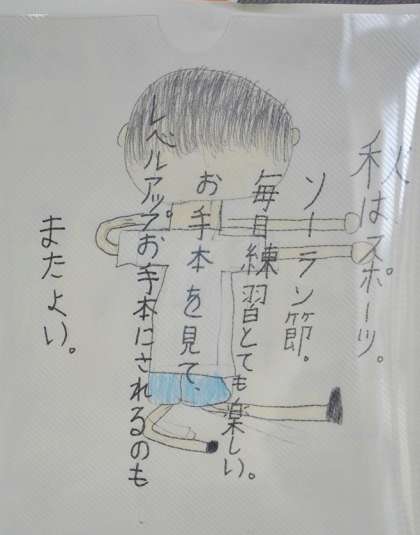 秋はスポーツ。
ソーラン節。
毎日練習とても楽しい。
お手本を見て、
レベルアップお手本にされるのも
またよい。